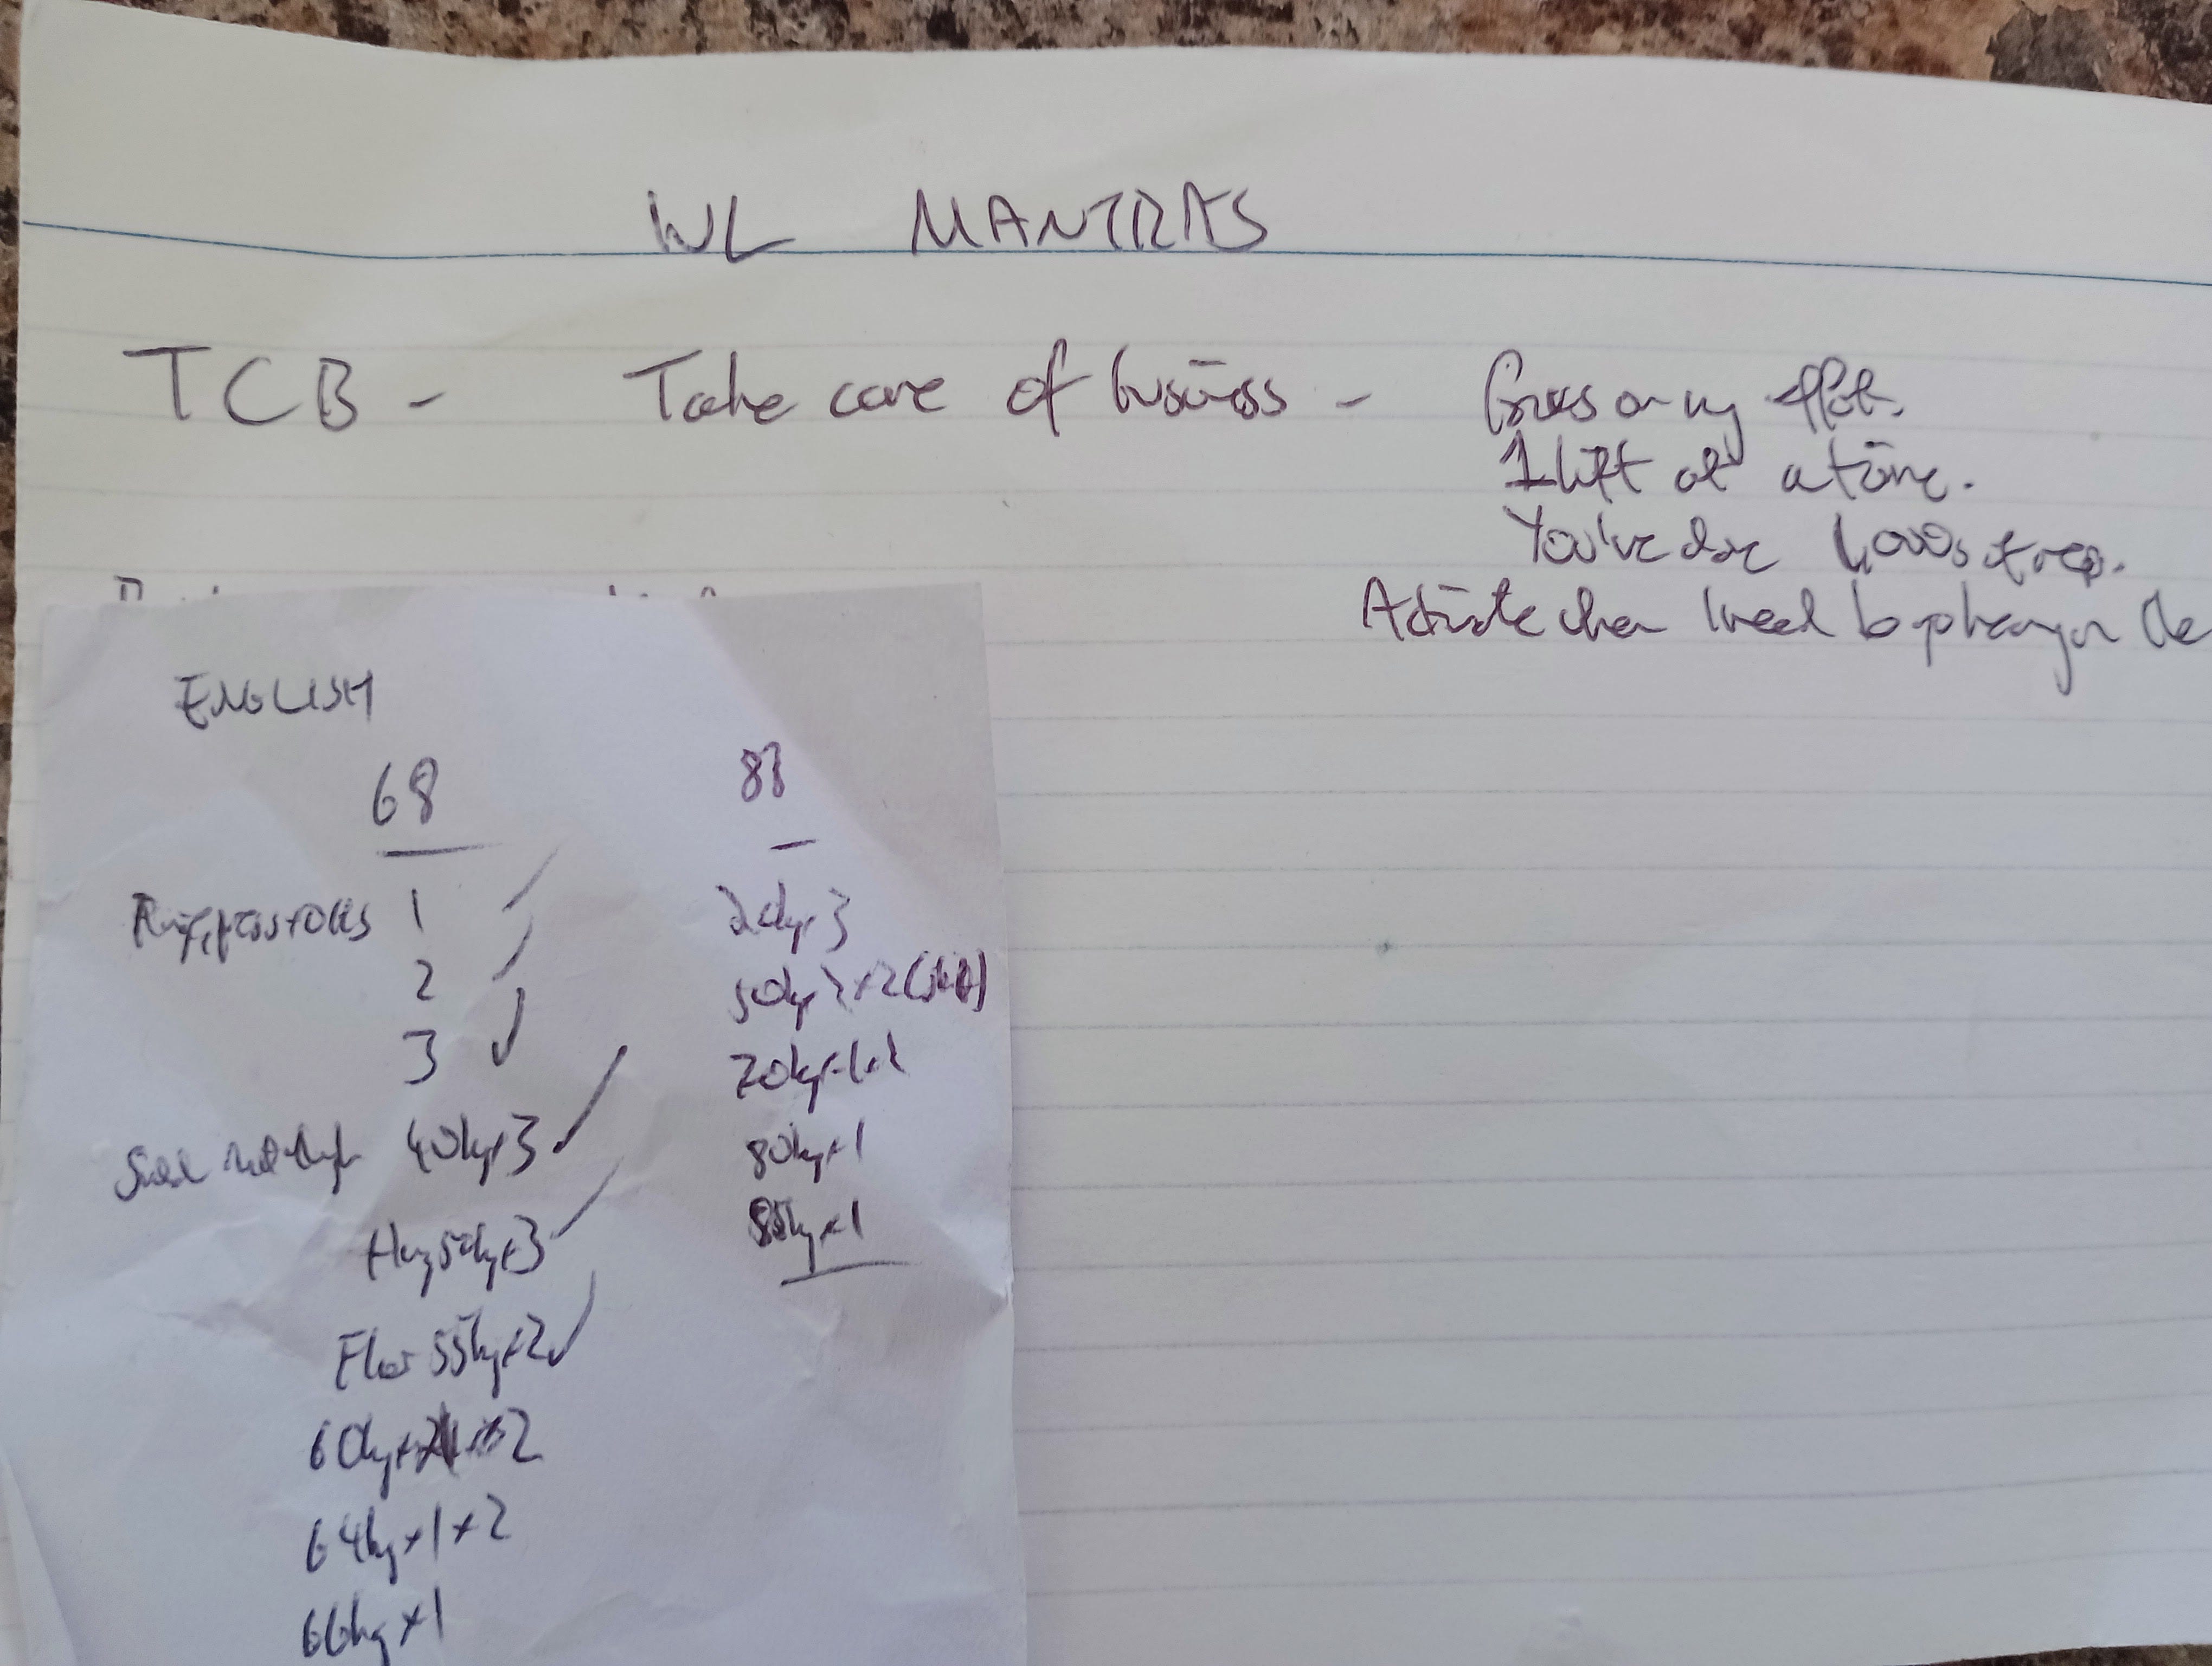 WL MANTRAS
TCB - Take care of business - Focus on my effort.
1 lift at a time.
You've done 1,000s of reps.
Activate when I need to
ENGLISH
68
1
2
3
40kg×3
Hang 50kg×3
Floor 55kg×2
60kg× ×2
64kg×1×2
66kg×1
83
20kg×3
50kg 2×2
70kg×1×1
80kg×1
85kg×1